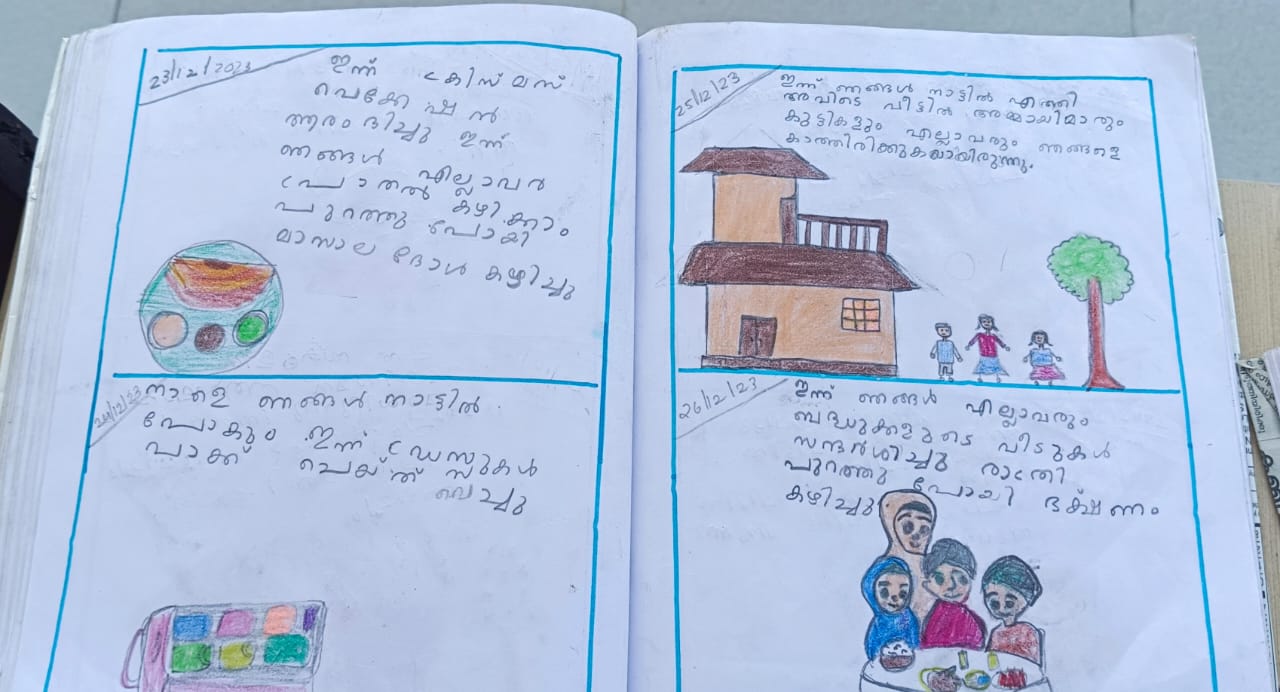 23/12/2023
ഇന്ന് ക്രിസ്മസ്
വെക്കേഷൻ
ആരംഭിച്ചു ഇന്ന്
ഞങ്ങൾ എല്ലാവർ
പ്രാതൽ കഴിക്കാം
പുറത്തു പോയി
മാസാല ദോശ കഴിച്ചു
24/12/23
നാളെ ഞങ്ങൾ നാട്ടിൽ
പോകും ഇന്ന് ഡ്രസ്സുകൾ
പാക്ക് ചെയ്ത് വെച്ചു
25/12/23
ഇന്ന് ഞങ്ങൾ നാട്ടിൽ എത്തി
അവിടെ വീട്ടിൽ അമ്മായിമാരും
കുട്ടികളും എല്ലാവരും ഞങ്ങളെ
കാത്തിരിക്കുകയായിരുന്നു.
26/12/23
ഇന്ന് ഞങ്ങൾ എല്ലാവരും
ബന്ധുക്കളുടെ വീടുകൾ
സന്ദർശിച്ചു രാത്രി
പുറത്തു പോയി ഭക്ഷണം
കഴിച്ചു